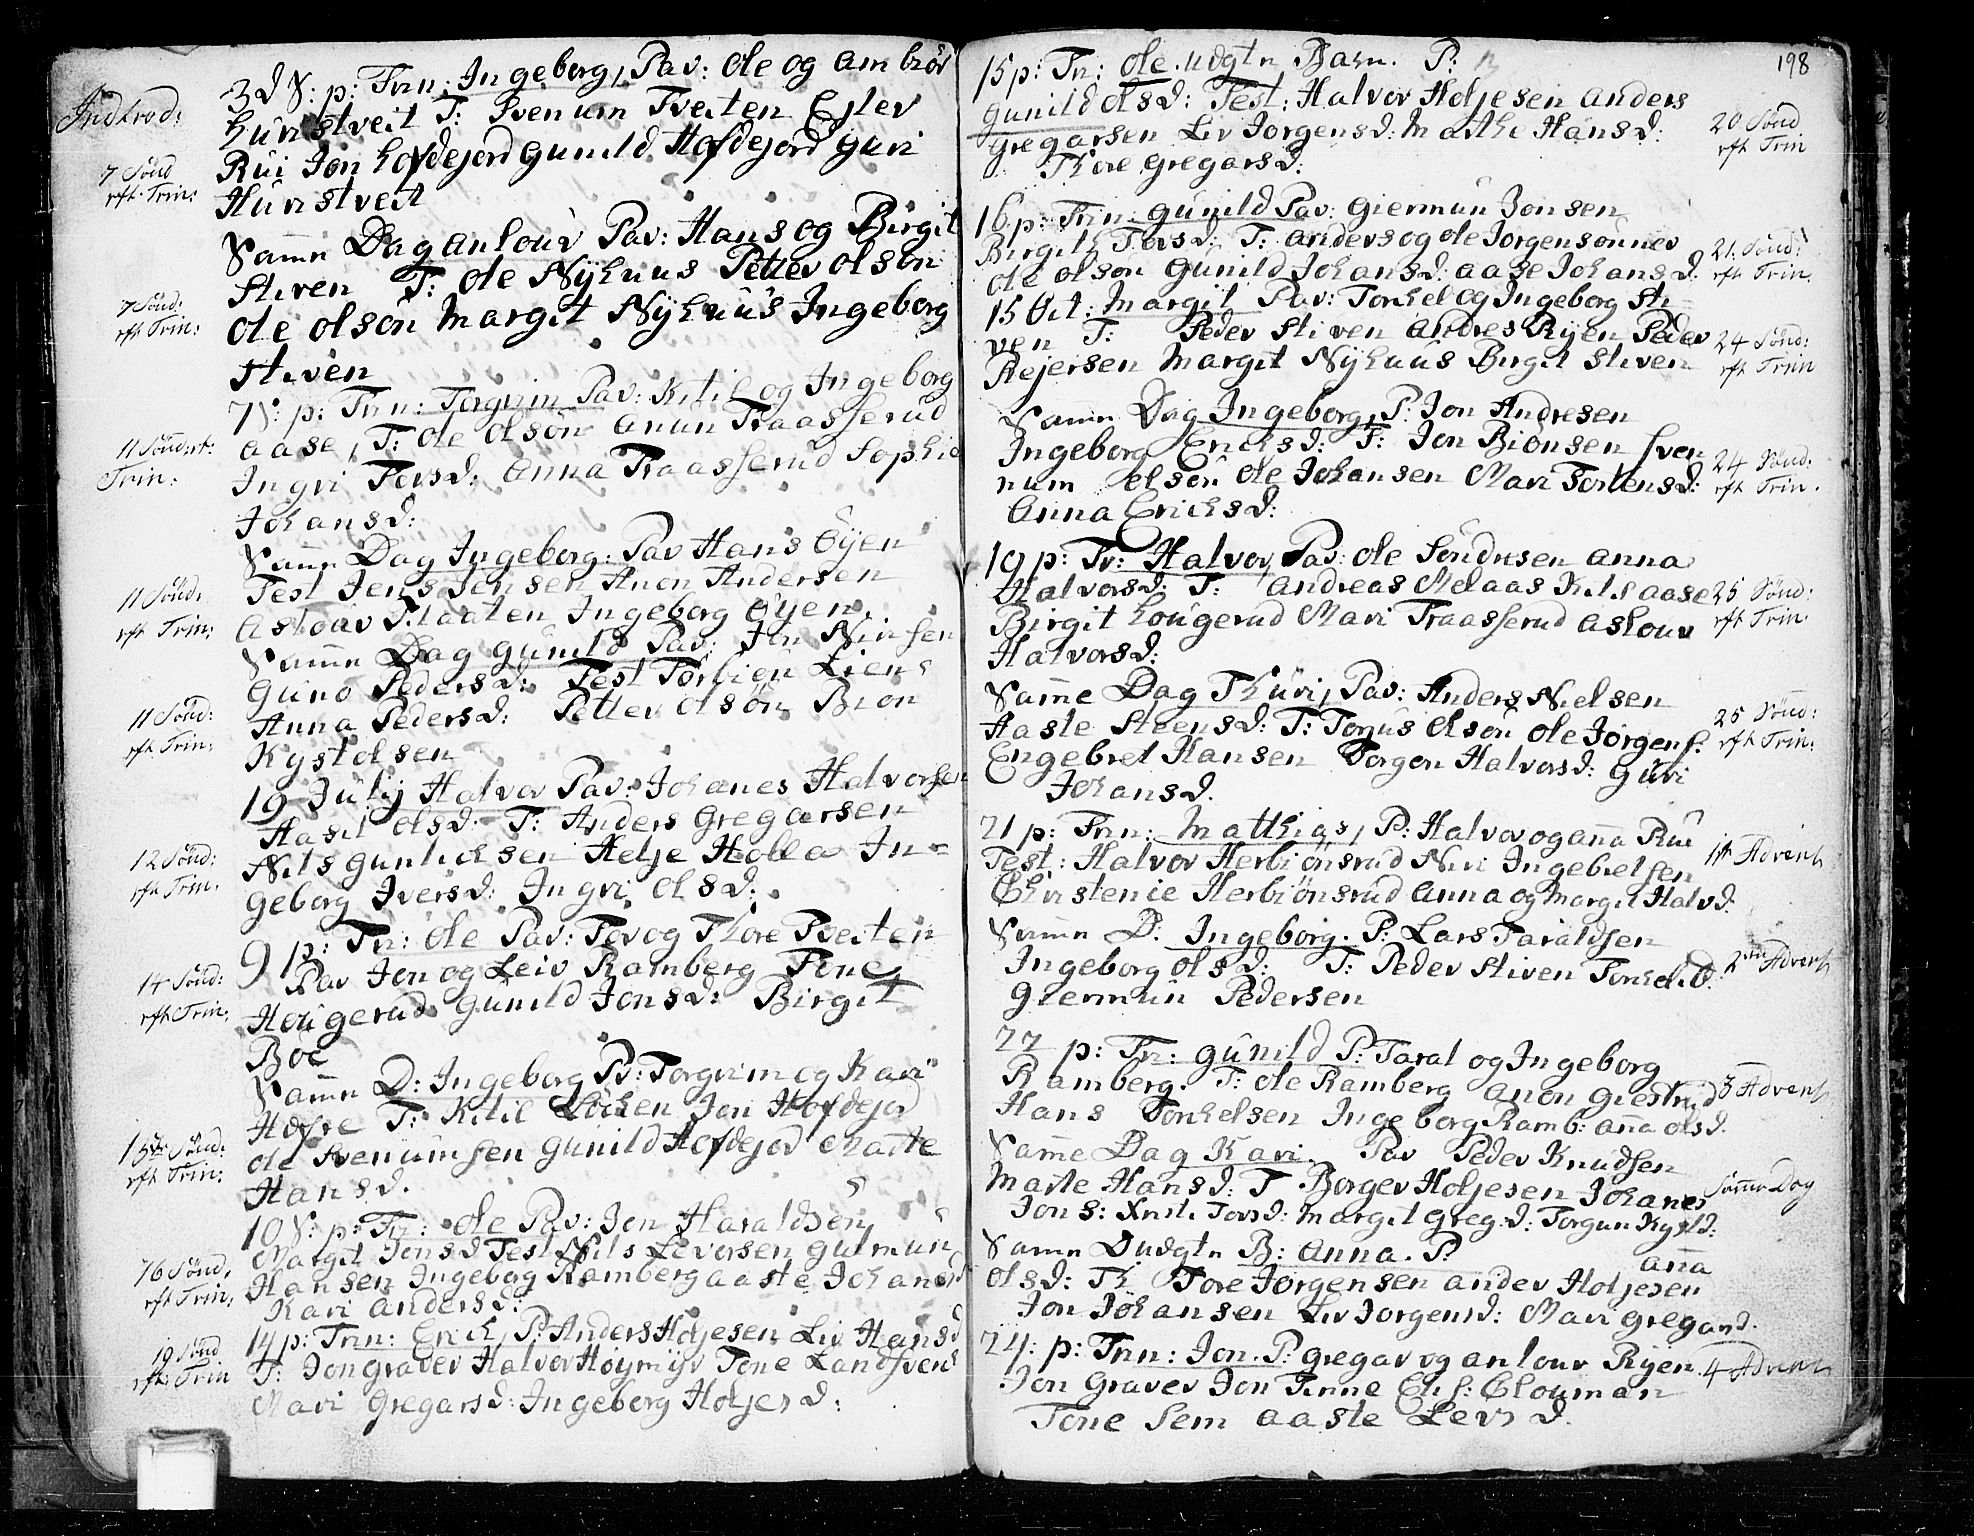 Indtrod:
3d S: p: Trin: Ingeborg, Par: Ole og Ambiør
Hunstveit T: Svenum Tveiten Eslev
Rui Jon Hofdejord Gunild Hofdejord Guri
Hunstveit
7 Sønd
eft. Trin:
Samme Dag Anlour Par: Hans og Birgit
Stiven T: Ole Nyhuus Petter Olson
Ole Olson Margit Nyhuus Ingeborg
Stiven
7 Sønd:
eft Trin:
7 S: p: Trin: Torgrim Par: Kitil og Ingeborg
Aase, T: Ole Olson Anun Traasserud
Ingri Torsd: Anna Traasserud Sophie
Johansd:
11 Sønd: et:
Trin:
Samme Dag Ingeborg: Par Hans Øyen
Test Jens Jensen Anon Andersen
Aslour Plaaten Ingeborg Øyen.
11 Sønd.
eft Trin:
Samme Dag Gunild Par: Jon
Guno Pedersd: Test Torbiøn Liens
Anna Pedersd: Petter Olson Bion
Kystolsen
11 Sønd:
eft. Trin:
19 Julij Halvor Par: Johanes Halvorsen
Hasil Olsd: T: Anders Gregarsen
Nils Gunlichsen Helje Holla In-
geborg Iversd: Ingri Olsd:
12 Sønd:
eft Trin.
9 p: Tri: Ole Par: Tov og Thore Tveiten
Par Jon og Leiv Ramberg Tone
Hougerud Gunild Jonsd: Birgit
Böe
14 Sønd:
eft Trin:
Samme D: Ingeborg P: Torgrim og Kari
T: Kitil Jon Hofdejord
Ole Svenumsen Gunild Hofdejord Marte
Hansd.
15de Sønd:
eft Trin:
10 S: p: Tr: Ole Par: Jon Haraldsen
Margit Jonsd Test Nils Leversen Gulmun
Hansen Ingeborg Ramberg Aaste Johansd
Kari Andersd:
16 Sønd,
eft Trin,
14 p: Trin: Erich, P: Anders Holjesen Liv Hansd
T: Jon Graver Halvor Høymyr Tone Landsvens
Mari Gregarsd: Ingeborg Holjesd:
19 Sønd
eft: Trin
198
15 p: Tri: Ole. udgtn Barn. P:
Gunild Olsd: Test: Halvor Holjesen Anders
Gregarsen Liv Jorgensd: Marthe Hansd:
Thore Gregarsd.
20 Sønd
eft Trin
16 p: Trin: Gunild Par: Giermun Jonsen
Birgith Torsd: T: Anders og Ole Jorgensønner
Ole Olson Gunild Johansd: Aase Johansd.
21. Sønd:
eft Trin.
15 Oct: Margit Par: Torkel og Ingeborg Sti-
ven T: Peder Stiven Andres Ryen Peder
Rejersen Margit Nyhuus Birgit Stiven
24 Sønd:
eft Trin
Samme Dag Ingeborg, P: Jon Andresen
Ingeborg Erichsd: T: Jon Bionsen Sven
num Olson Ole Johansen Mari Torstensd:
Anna Erichsd:
24 Sønd:
eft Trin.
19 p: Tr: Halvor, Par: Ole Sondresen Anna
Halvorsd: T: Andreas Melaas Kitil Aase
Birgit Hougerud Mari Traasserud Aslour
Halvorsd:
25 Sønd:
eft Trin.
Samme Dag Thuri, Par: Anders Nielsen
Haste Steensd: T: Torgus Olson Ole Jorgens.
Engebret Hansen Torgon Halvorsd: Guri
Johansd.
25 Sønd:
eft Trin:
21 p: Trin: Matthias, P: Halvor og Anna Rui
Test: Halvor Herbiønsrud Niri Ingebretsen
Christenie Herbiønsrud Anna og Margit Halvd.
1st Advent
Samme D. Ingeborg. P: Lars Taraldsen
Ingeborg Olsd: T: Peder Stiven Torkel
Giermun Pedersen
2den Advent
22 p: Tri: Gunild P: Taral og Ingeborg
Ramberg. T: Ole Ramberg Anon Giestrud
Hans Torkelsen Ingeborg Ramb: Anna Olsd.
3 Advent
Samme Dag Kari. Par Peder Knudsen
Marte Hansd: T Borger Holjesen Johanes
Jons: Kriti Torsd: Margit Greg:d: Torgun Kystd:
Samme Dag
Samme D udgtn B: Anna. P: Anna
Olsd: Th Tore Jorgensen Ander Holjesen
Jon Johansen Liv Jorgensd: Mari Gregarsd.
24: p: Trin: Jon. P: Gregar og Anlour Ryen.
Jon Graver Jon Tinne Chouman
Tone Sem Aaste Leversd.
4 Advent